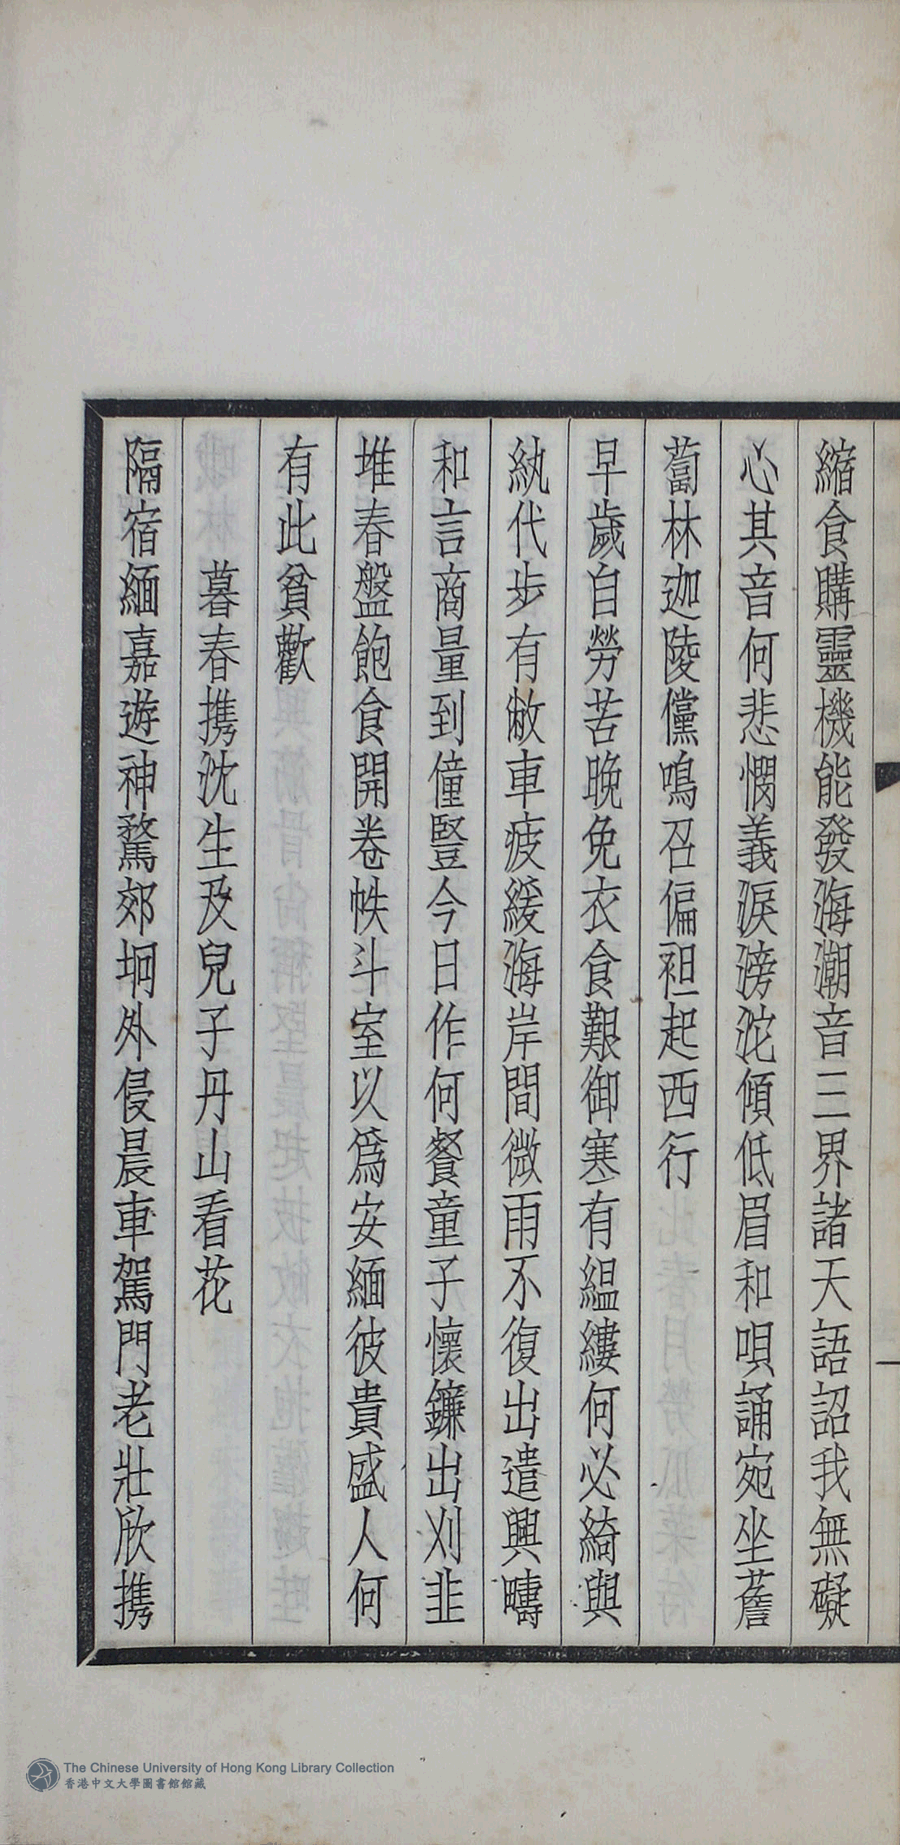 縮食購靈機能發海潮音三界諸天語詔我無礙
心其音何悲憫義淚滂沱傾低眉和唄誦宛坐薝
蔔林迦陵儻鳴召偏袒起西行
早歲自勞苦晚免衣食艱御寒有縕縷何必綺與
紈代步有敝車疲緩海岸間微雨不復出遣興疇
和言商量到僮豎今日作何餐童子懷鐮出刈韭
堆春盤飽食開卷帙斗室以爲安緬彼貴盛人何
有此貧歡
暮春携沈生及兒子丹山看花
隔宿緬嘉遊神騖郊坰外侵晨車駕門老壯欣携
The Chinese University of Hong Kong Library Collection
香港中文大學圖書館館藏